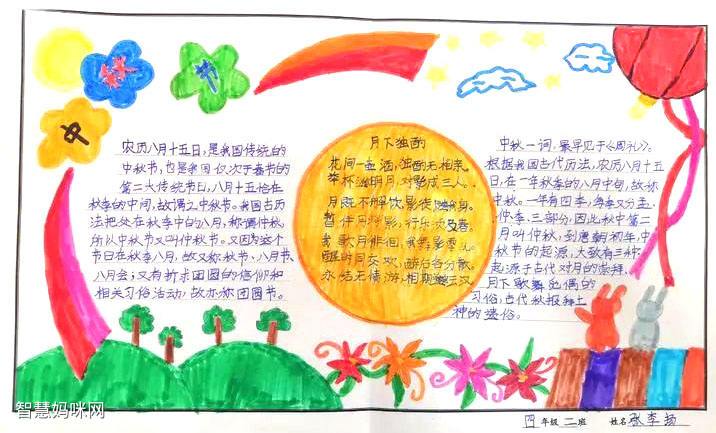 中
秋
节
农历八月十五日,是我国传统的
中秋节,也是我国仅次于春节的
第二大传统节日,八月十五恰在
秋季的中间,故谓之中秋节。我国古历
法把处在秋季中的八月,称谓仲秋
所以中秋节又叫仲秋节。又因为这个
节日在秋季八月,故又称秋节、八月节、
八月会;又有祈求团圆的信仰和
相关习俗活动,故亦称团圆节。
月下独酌
花间一壶酒,独酌无相亲。
举杯邀明月,对影成三人。
月既不解饮,影徒随我身。
暂伴月将影,行乐须及春。
我歌月徘徊,我舞影零乱。
醒时同交欢,醉后各分散。
永结无情游,相期邈云汉。
中秋一词,最早见于《周礼》。
根据我国古代历法,农历八月十五
日,在一年秋季的八月中旬,故称
中秋。一年有四季,每季又分孟、
仲、季三部分,因此秋中第二
月叫仲秋,到唐朝初年,中
秋节的起源,大致有三种:
起源于古代对月的崇拜、
月下歌舞觅偶的
习俗,古代秋报拜土
神的遗俗。
智慧妈咪网
四年级二班 姓名张李扬